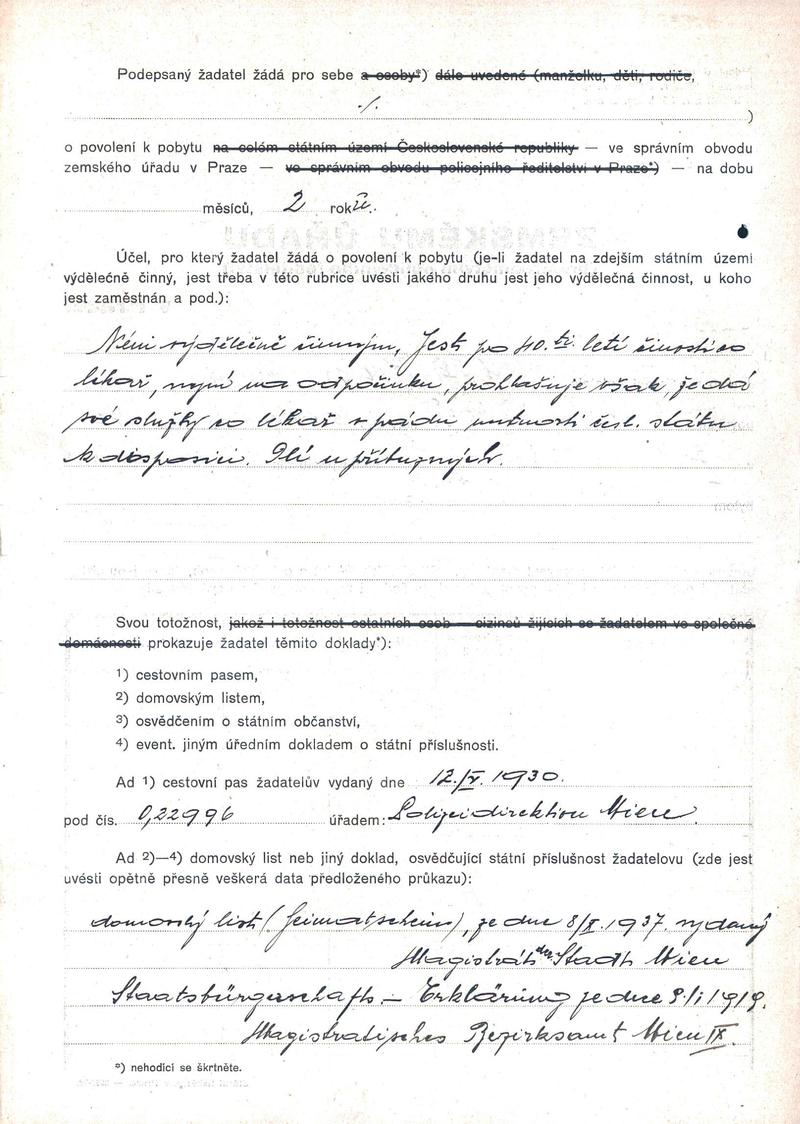 Podepsaný žadatel žádá pro sebe a osoby*) dále uvedené (manželku, děti, rodiče,
-/-
)
o povolení k pobytu na celém státním území Československé republiky — ve správním obvodu
zemského úřadu v Praze — ve správním obvodu policejního ředitelství v Praze*) — na dobu
měsíců, 2 roků.
Účel, pro který žadatel žádá o povolení k pobytu (je-li žadatel na zdejším státním území
výdělečně činný, jest třeba v této rubrice uvésti jakého druhu jest jeho výdělečná činnost, u koho
jest zaměstnán a pod.):
Není výdělečně činným, Jest po 40.ti letí činosti co
lékař, nyní na odpočinku, prohlašuje však, že dá
své služby co lékař v pádu nutnosti čsl. státu
k disposici. Dlí u příbuzných.
Svou totožnost, jakož i totožnost ostatních osob — cizinců žijících se žadatelem ve společné
domácnosti prokazuje žadatel těmito doklady*):
1) cestovním pasem,
2) domovským listem,
3) osvědčením o státním občanství,
4) event. jiným úředním dokladem o státní příslušnosti.
Ad 1) cestovní pas žadatelův vydaný dne 12./V. 1930.
pod čís. 0,22996 úřadem: Polizeidirektion Wien.
Ad 2)—4) domovský list neb jiný doklad, osvědčující státní příslušnost žadatelovu (zde jest
uvésti opětně přesně veškerá data předloženého průkazu):
domovský list (Heimatschein), ze dne 8/X. 1937. vydaný
Magistrát der Stadt Wien
Staatsbürgerschafts- Erklärung ze dne 9./I 1919.
Magistratisches Bezirksamt Wien IX.
*) nehodící se škrtněte.